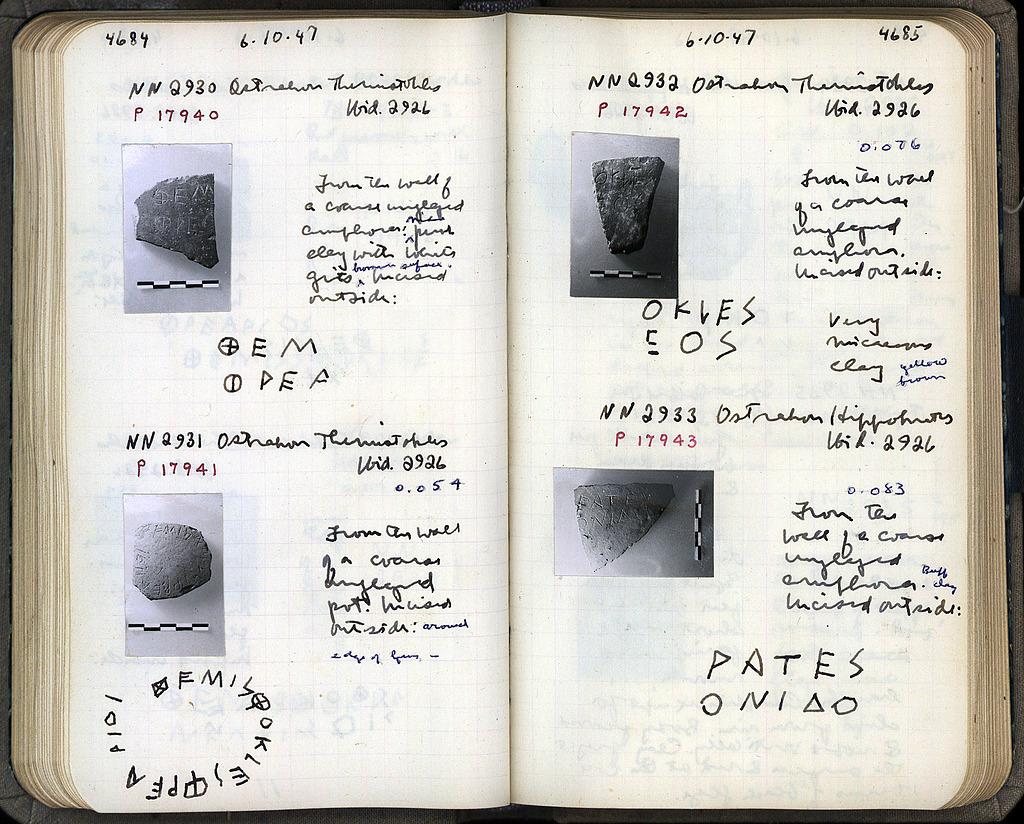 4684
6.10.47
NN 2930 Ostrakon Themistokles
P 17940 Ibid. 2926
From the wall of
a coarse unglazed
amphora: pink
clay with white
grits. brownish surface. Incised
outside:
⊕ E M
Ⓘ P E A
NN 2931 Ostrakon Themistokles
P 17941 Ibid. 2926
0.054
From the wall
of a coarse
unglazed
pot. Incised
outside: around
edge of
⊠EMIS⊕OKLESΦPEA
PIOI
6.10.47
4685
NN 2932 Ostrakon Themistokles
P 17942 Ibid. 2926
0.076
From the wall
of a coarse
unglazed
amphora.
Incised outside:
OKLES
EOS
Very
micaceous
clay yellow
brown
NN 2933 Ostrakon Hippokrates
P 17943 Ibid. 2926
0.083
From the
wall of a coarse
unglazed
amphora. Buff clay
Incised outside:
PATES
ONIΔO